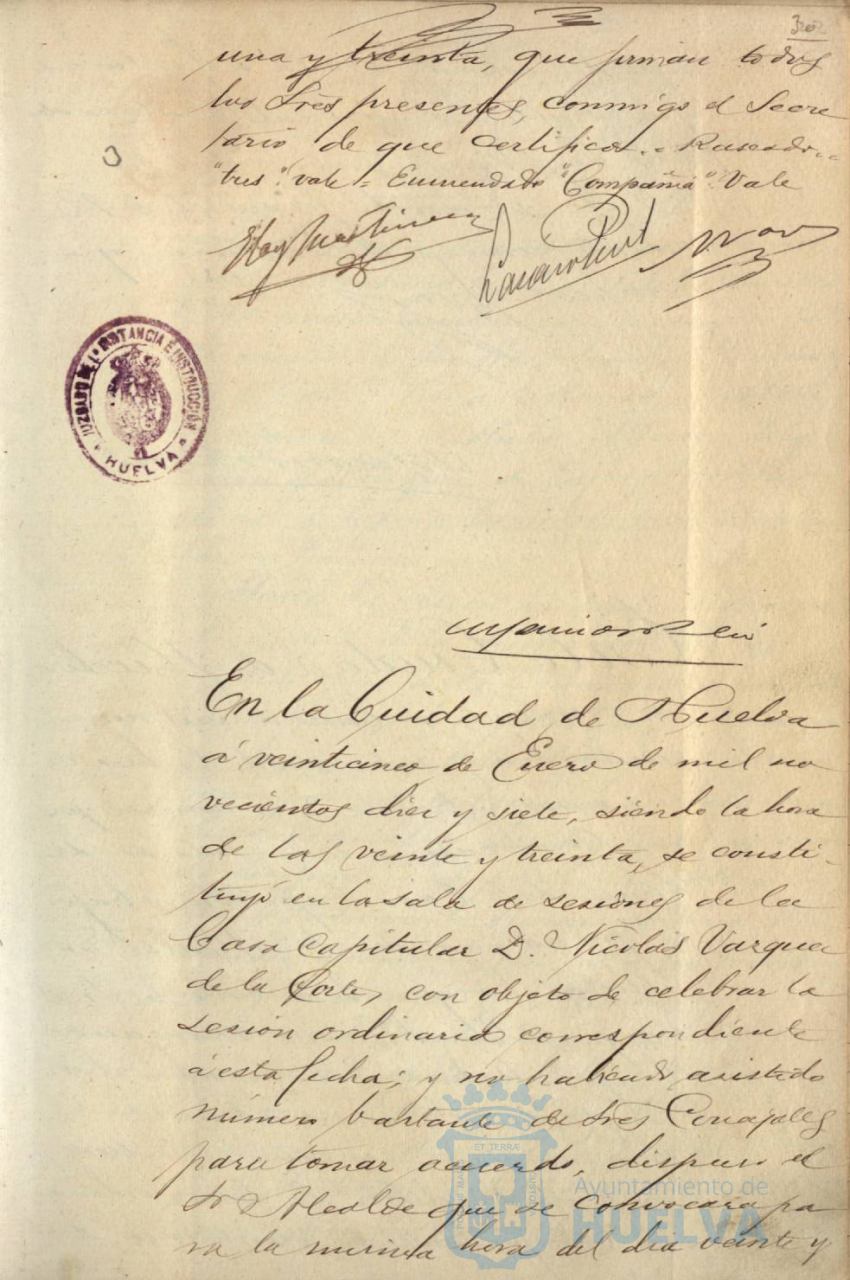 302
una y treinta, que firman todos
los Sres presentes, conmigo el Secre
tario de que certifico.= Raspado..=
"tres": vale = Enmendado "Compañia": Vale
Eloy Martinez
JUZGADO DE 1ª INSTANCIA E INSTRUCCIÓN
HUELVA
En la Ciudad de Huelva
á veinticinco de Enero de mil no
vecientos diez y siete, siendo la hora
de las veinte y treinta, se consti-
tuyó en la sala de sesiones de la
Casa Capitular D. Nicolás Vazquez
de la Corte, con objeto de celebrar la
sesión ordinaria correspondiente
á esta fecha; y no habiendo asistido
número bastante de Sres Concejales
para tomar acuerdo, dispuso el
Sr Alcalde que se convocara pa
ra la misma hora del dia veinte y
Ayuntamiento de
HUELVA